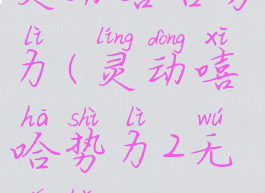 lì líng dòng xī
力(灵动嘻
hā shì lì wú
哈势力2无